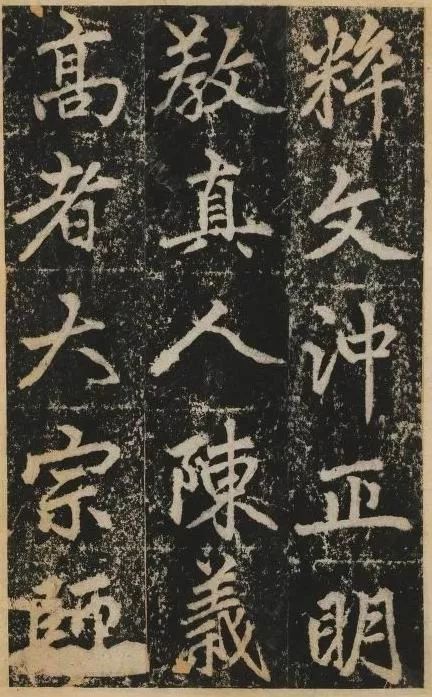 粹文沖正明
教真人陳義
高者大宗師